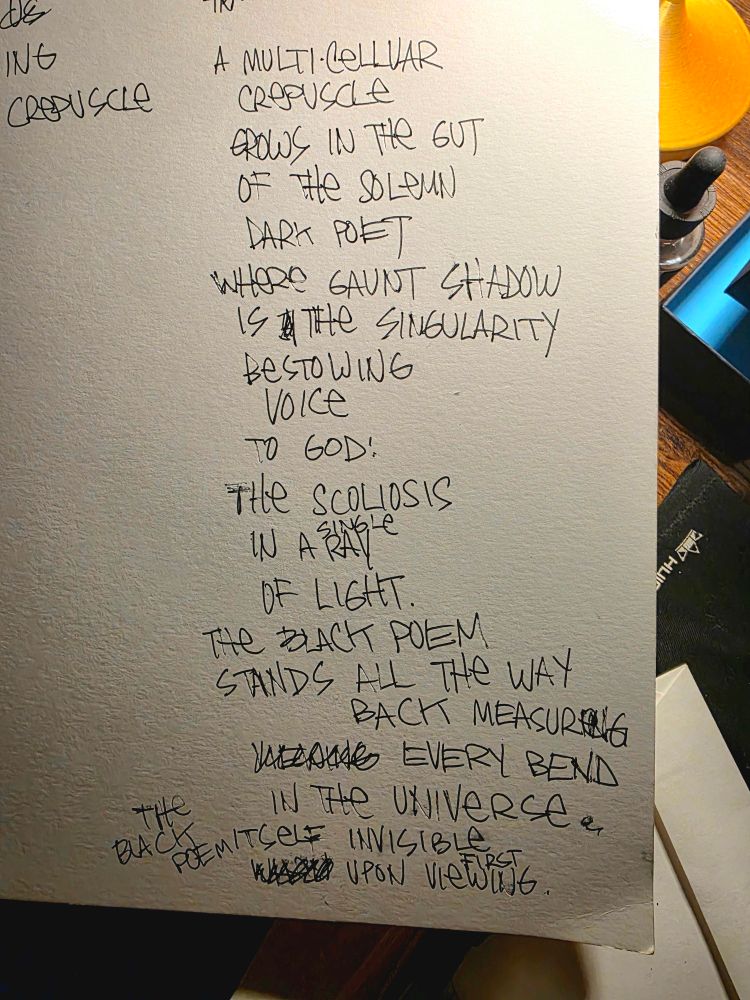 ING
CREPUSCLE
A MULTI-CELLUAR
CREPUSCLE
GROWS IN THE GUT
OF THE SOLEMN
DARK POET
WHERE GAUNT SHADOW
IS THE SINGULARITY
BESTOWING
VOICE
TO GOD:
THE SCOLIOSIS
IN A SINGLE RAY
OF LIGHT.
THE BLACK POEM
STANDS ALL THE WAY
BACK MEASURING
EVERY BEND
IN THE UNIVERSE.
THE
BLACK
POEM ITSELF INVISIBLE
UPON FIRST VIEWING.